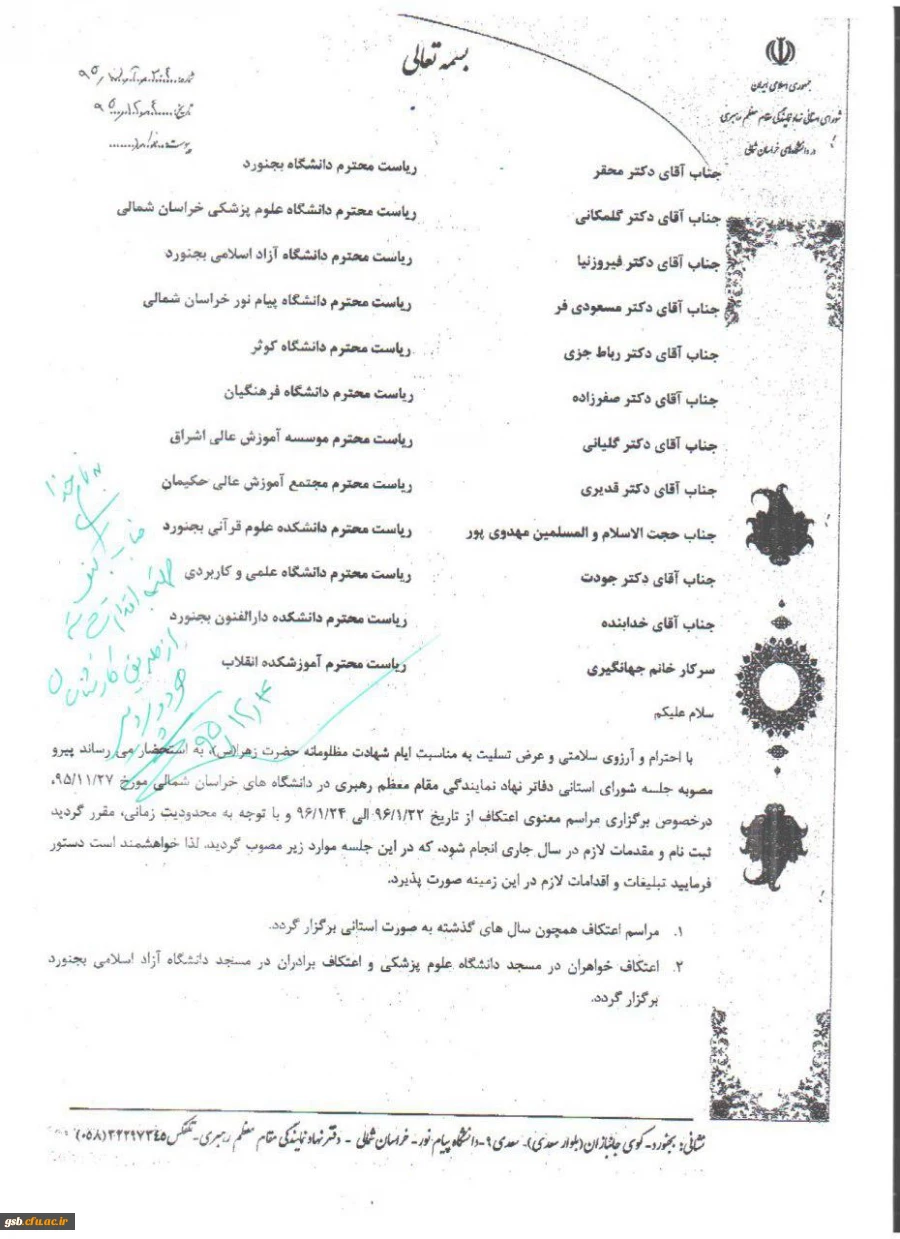 بسمه تعالی
جمهوری اسلامی ایران
شورای استانی نهاد نمایندگی مقام معظم رهبری
در دانشگاههای خراسان شمالی
شماره:
تاریخ:
پیوست:
جناب آقای دکتر محقر ریاست محترم دانشگاه بجنورد
جناب آقای دکتر گلمکانی ریاست محترم دانشگاه علوم پزشکی خراسان شمالی
جناب آقای دکتر فیروزنیا ریاست محترم دانشگاه آزاد اسلامی بجنورد
جناب آقای دکتر مسعودی فر ریاست محترم دانشگاه پیام نور خراسان شمالی
جناب آقای دکتر رباط جزی ریاست محترم دانشگاه کوثر
جناب آقای دکتر صفرزاده ریاست محترم دانشگاه فرهنگیان
جناب آقای دکتر گلیانی ریاست محترم موسسه آموزش عالی اشراق
جناب آقای دکتر قدیری ریاست محترم مجتمع آموزش عالی حکیمان
جناب حجت الاسلام و المسلمین مهدوی پور ریاست محترم دانشکده علوم قرآنی بجنورد
جناب آقای دکتر جودت ریاست محترم دانشگاه علمی و کاربردی
جناب آقای خدابنده ریاست محترم دانشکده دارالفنون بجنورد
سرکار خانم جهانگیری ریاست محترم آموزشکده انقلاب
سلام علیکم
با احترام و آرزوی سلامتی و عرض تسلیت به مناسبت ایام شهادت مظلومانه حضرت زهرا(س)، به استحضار می رساند پیرو
مصوبه جلسه شورای استانی دفاتر نهاد نمایندگی مقام معظم رهبری در دانشگاه های خراسان شمالی مورخ ۹۵/۱۱/۲۷،
درخصوص برگزاری مراسم معنوی اعتکاف از تاریخ ۹۶/۱/۲۲ الی ۹۶/۱/۲۴ و با توجه به محدودیت زمانی، مقرر گردید
ثبت نام و مقدمات لازم در سال جاری انجام شود، که در این جلسه موارد زیر مصوب گردید. لذا خواهشمند است دستور
فرمایید تبلیغات و اقدامات لازم در این زمینه صورت پذیرد.
۱. مراسم اعتکاف همچون سال های گذشته به صورت استانی برگزار گردد.
۲. اعتکاف خواهران در مسجد دانشگاه علوم پزشکی و اعتکاف برادران در مسجد دانشگاه آزاد اسلامی بجنورد
برگزار گردد.
به نام خدا
۹۵/۱۲/۴
نشانی: بجنورد- کوی جانبازان(بلوار سعدی)- سعدی ۹-دانشگاه پیام نور- خراسان شمالی - دفتر نهاد نمایندگی مقام معظم رهبری-تلفکس ۳۲۲۹۷۳۴۵(۰۵۸)
gsb.cfu.ac.ir